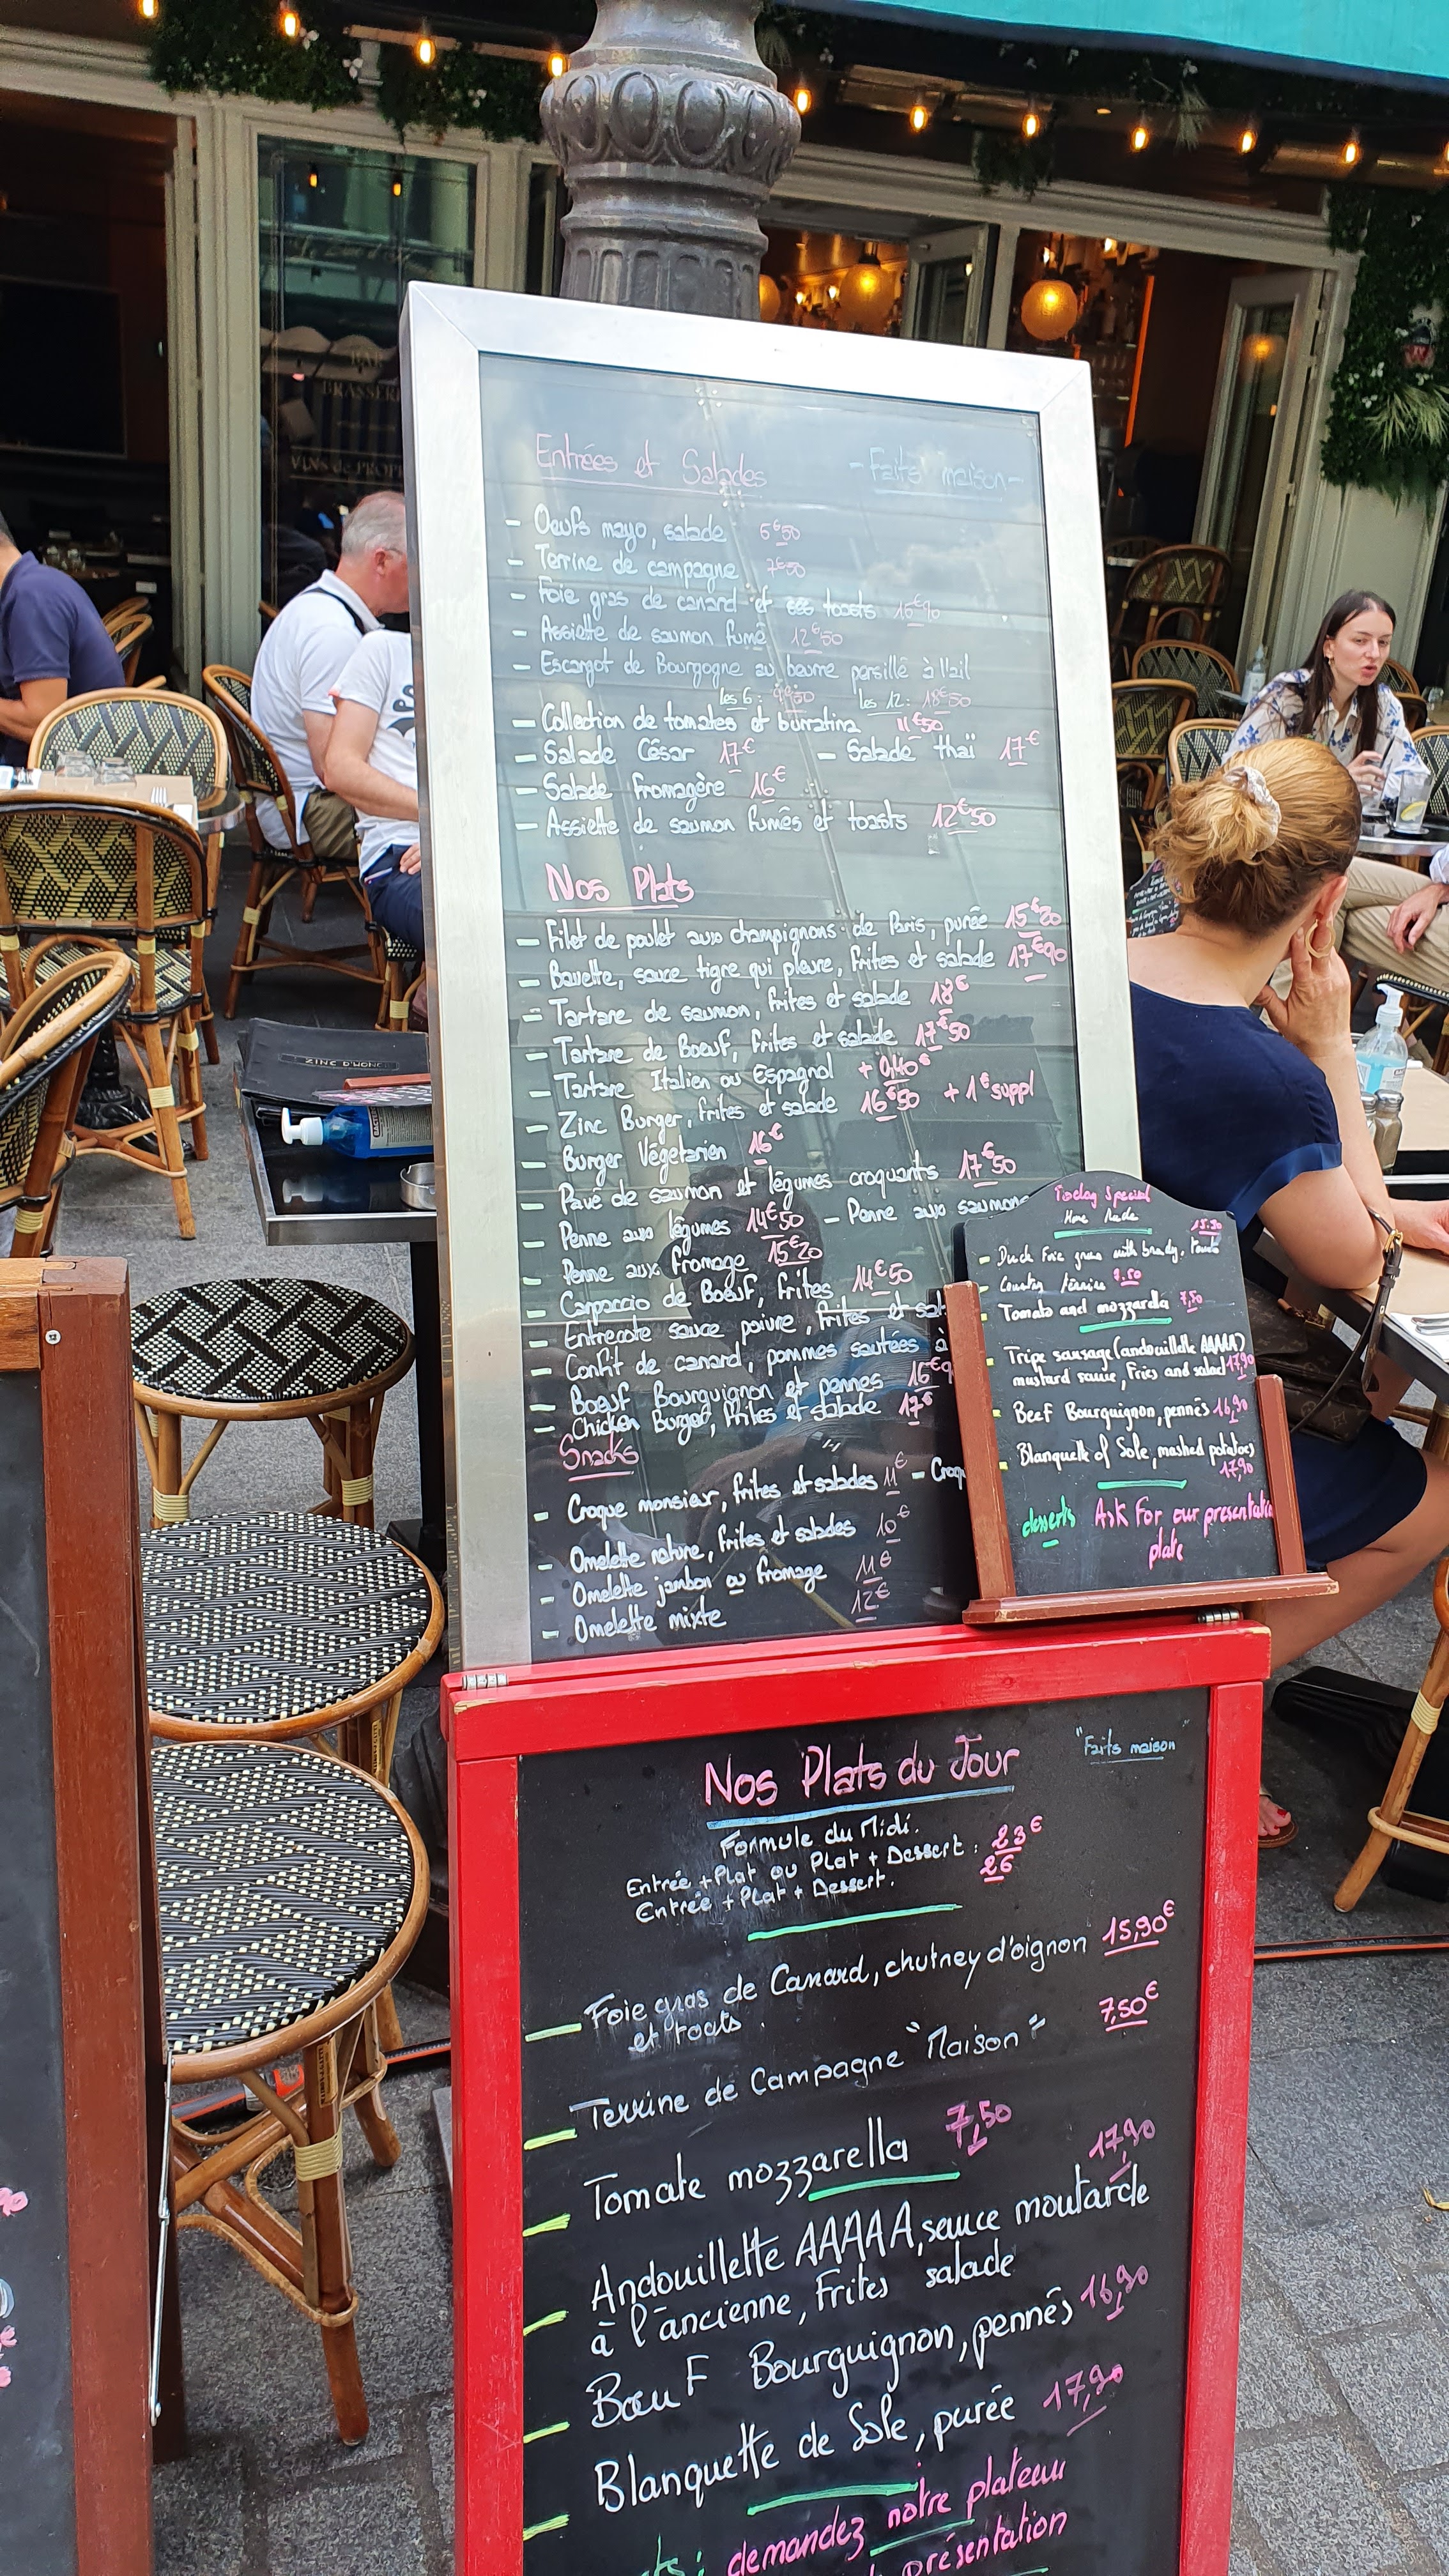 BRASSERIE
ZINC D'HONO
Entrées et Salades
- Faits maison -
- Oeufs mayo, salade 6€50
- Terrine de campagne 7€50
- Foie gras de canard et ses toasts
- Assiette de saumon fumé 12€50
- Escargot de Bourgogne au beurre persillé à l'ail
les 6: les 12: 18€50
- Collection de tomates et burratina 11€50
- Salade César 17€ - Salade thaï 17€
- Salade fromagère 16€
- Assiette de saumon fumés et toasts 12€50
Nos Plats
- Filet de poulet aux champignons de Paris, purée 15€20
- Bavette, sauce tigre qui pleure, frites et salade 17€90
- Tartare de saumon, frites et salade 18€
- Tartare de Boeuf, frites et salade 17€50
- Tartare Italien ou Espagnol + 0,40€
- Zinc Burger, frites et salade 16€50 + 1€ suppl
- Burger Végétarien 16€
- Pavé de saumon et légumes croquants 17€50
- Penne aux légumes 14€50 - Penne aux saumons
- Penne aux fromage 15€20
- Carpaccio de Boeuf, frites 14€50
- Entrecote sauce poivre, frites et sal
- Confit de canard, pommes sautées à
- Boeuf Bourguignon et pennes 16€9
- Chicken Burger, frites et salade 17€
Snacks
- Croque monsieur, frites et salades 11€ - Croq
- Omelette nature, frites et salades 10€
- Omelette jambon ou fromage 11€
- Omelette mixte 12€
Today Special
Home Made
- Duck Foie gras with brandy, toasts 15.90
- Country terrine 7,50
- Tomato and mozzarella 7,50
- Tripe sausage (andouillette AAAAA)
mustard sauce, Fries and salad 17,90
- Beef Bourguignon, pennés 16,90
- Blanquette of Sole, mashed potatoes
17,90
desserts Ask For our presentation
plate
Nos Plats du Jour
"Faits maison"
Formule du Midi.
Entrée + Plat ou Plat + Dessert : 23€
Entrée + Plat + Dessert. 26
- Foie gras de Canard, chutney d'oignon 15,90€
et toats.
- Terrine de Campagne "Maison" 7,50€
- Tomate mozzarella 7,50
- Andouillette AAAAA, sauce moutarde 17,90
à l'ancienne, Frites salade
- BœuF Bourguignon, pennés 16,90
- Blanquette de Sole, purée 17,90
ts: demandez notre plateau
présentation